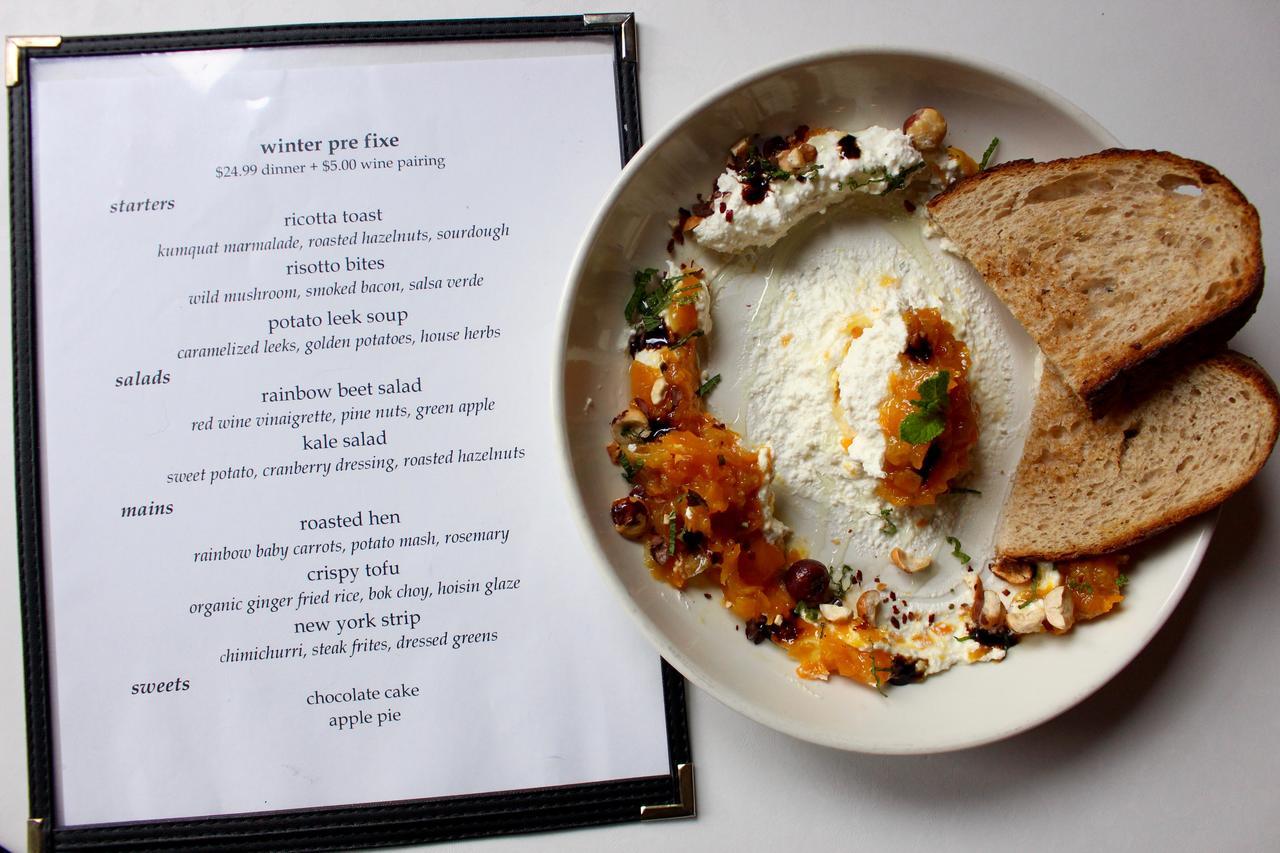 winter pre fixe
$24.99 dinner + $5.00 wine pairing
starters
ricotta toast
kumquat marmalade, roasted hazelnuts, sourdough
risotto bites
wild mushroom, smoked bacon, salsa verde
potato leek soup
caramelized leeks, golden potatoes, house herbs
salads
rainbow beet salad
red wine vinaigrette, pine nuts, green apple
kale salad
sweet potato, cranberry dressing, roasted hazelnuts
mains
roasted hen
rainbow baby carrots, potato mash, rosemary
crispy tofu
organic ginger fried rice, bok choy, hoisin glaze
new york strip
chimichurri, steak frites, dressed greens
sweets
chocolate cake
apple pie